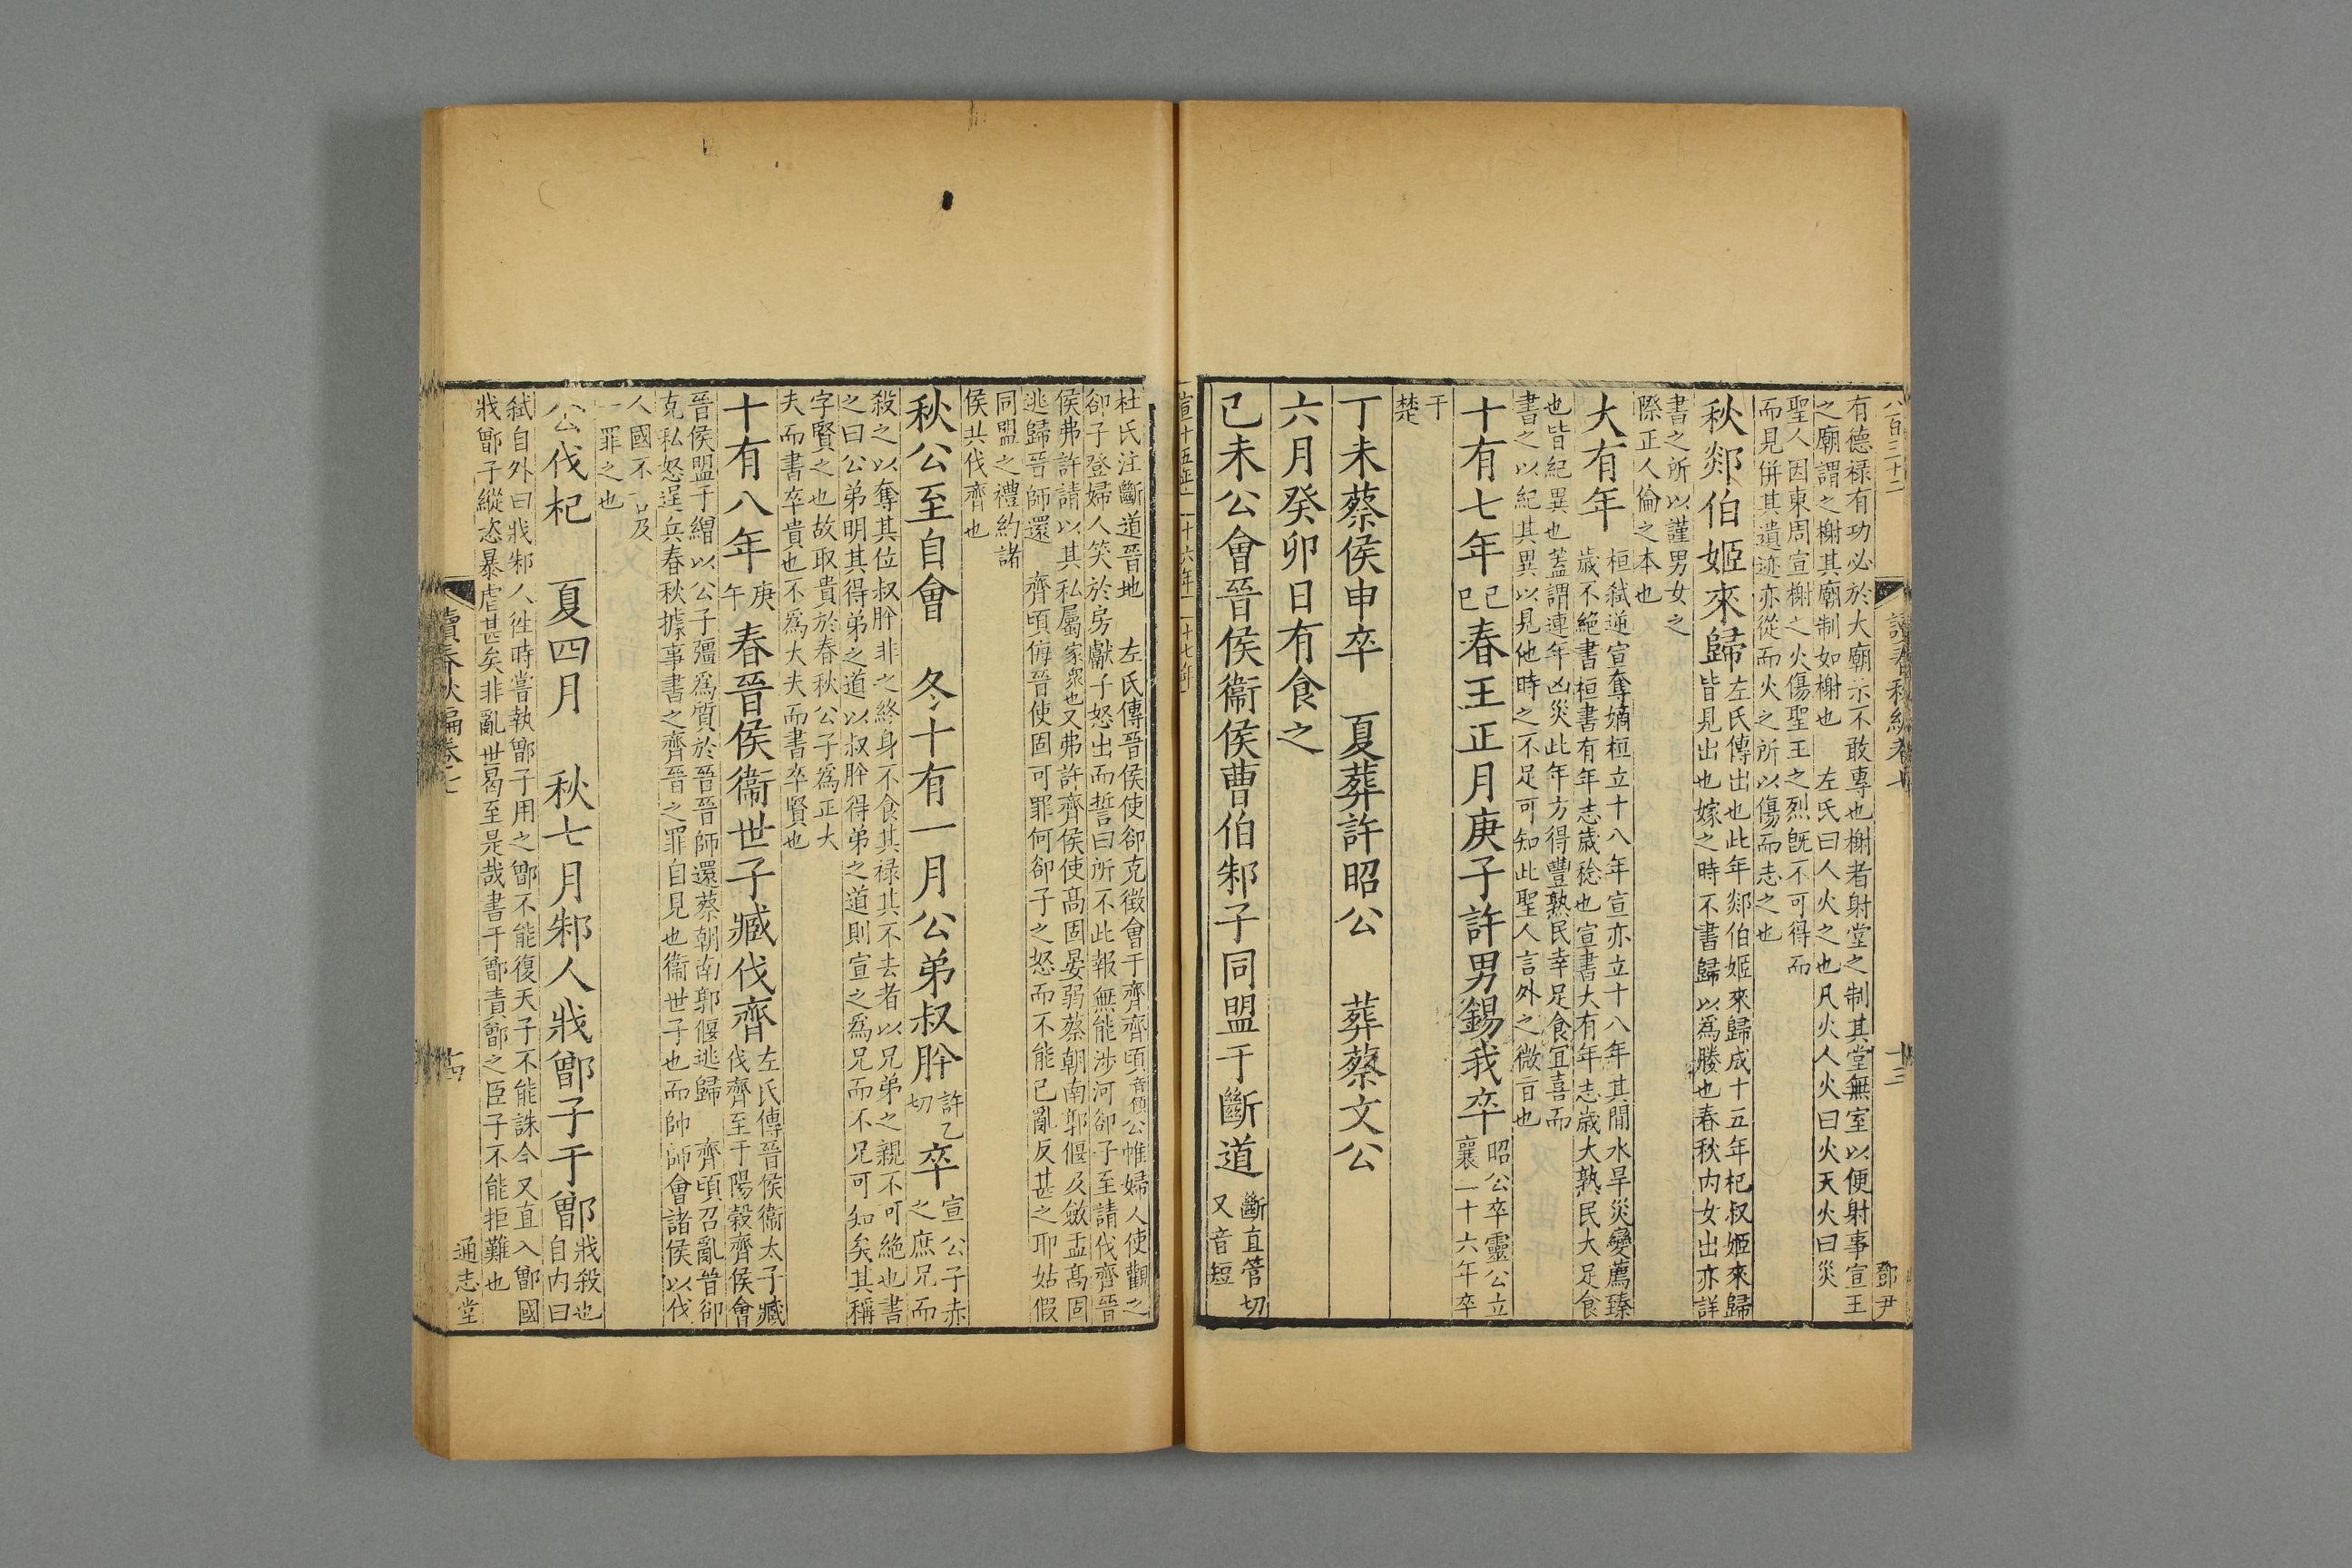 八百三十二
有德禄有功必於大廟示不敢專也榭者射堂之制其堂無室以便射事宣王
之廟謂之榭其廟制如榭也 左氏曰人火之也凡火人火曰火天火曰災
聖人因東周宣榭之火傷聖王之烈旣不可得而
而見併其遺迹亦從而火之所以傷而志之也
秋郯伯姬來歸
左氏傳出也此年郯伯姬來歸成十五年杞叔姬來歸
皆見出也嫁之時不書歸以爲媵也春秋内女出亦詳
書之所以謹男女之
際正人倫之本也
大有年
桓弑逆宣奪嫡桓立十八年宣亦立十八年其間水旱災變薦臻
歳不絶書桓書有年志歳稔也宣書大有年志歳大熟民大足食
也皆紀異也蓋謂連年凶災此年方得豐熟民幸足食宜喜而
書之以紀其異以見他時之不足可知此聖人言外之微言也
十有七年
己
巳
春王正月庚子許男錫我卒
昭公卒靈公立
襄二十六年卒
于
楚
丁未蔡侯申卒 夏葬許昭公 葬蔡文公
六月癸卯日有食之
己未公會晉侯衞侯曹伯邾子同盟于斷道
斷直管切
又音短
鄧尹
十三
宣十五年 十六年 十七年
杜氏注斷道晉地 左氏傳晉侯使卻克徵會于齊齊頃音傾公帷婦人使觀之
卻子登婦人笑於房獻子怒出而誓曰所不此報無能涉河卻子至請伐齊晉
侯弗許請以其私屬家衆也又弗許齊侯使髙固晏弱蔡朝南郭偃及斂盂髙固
逃歸晉師還 齊頃侮晉使固可罪何卻子之怒而不能已亂反甚之耶姑假
同盟之禮約諸
侯共伐齊也
秋公至自會 冬十有一月公弟叔肸
許乙
切
卒
宣公子赤
之庶兄而
殺之以奪其位叔肸非之終身不食其禄其不去者以兄弟之親不可絶也書
之曰公弟明其得弟之道以叔肸得弟之道則宣之爲兄而不兄可知矣其稱
字賢之也故取貴於春秋公子爲正大
夫而書卒貴也不爲大夫而書卒賢也
十有八年
庚
午
春晉侯衞世子臧伐齊
左氏傳晉侯衞太子臧
伐齊至于陽穀齊侯會
晉侯盟于繒以公子彊爲質於晉晉師還蔡朝南郭偃逃歸 齊頃召亂晉卻
克私怒逞兵春秋據事書之齊晉之罪自見也衞世子也而帥師會諸侯以伐
人國不言及
罪之也
公伐杞 夏四月 秋七月邾人戕鄫子于鄫
戕殺也
自内曰
弑自外曰戕邾人徃時嘗執鄫子用之鄫不能復天子不能誅今又直入鄫國
戕鄫子縱恣暴虐甚矣非亂世曷至是哉書于鄫責鄫之臣子不能拒難也
讀春秋編卷七
十四
通志堂